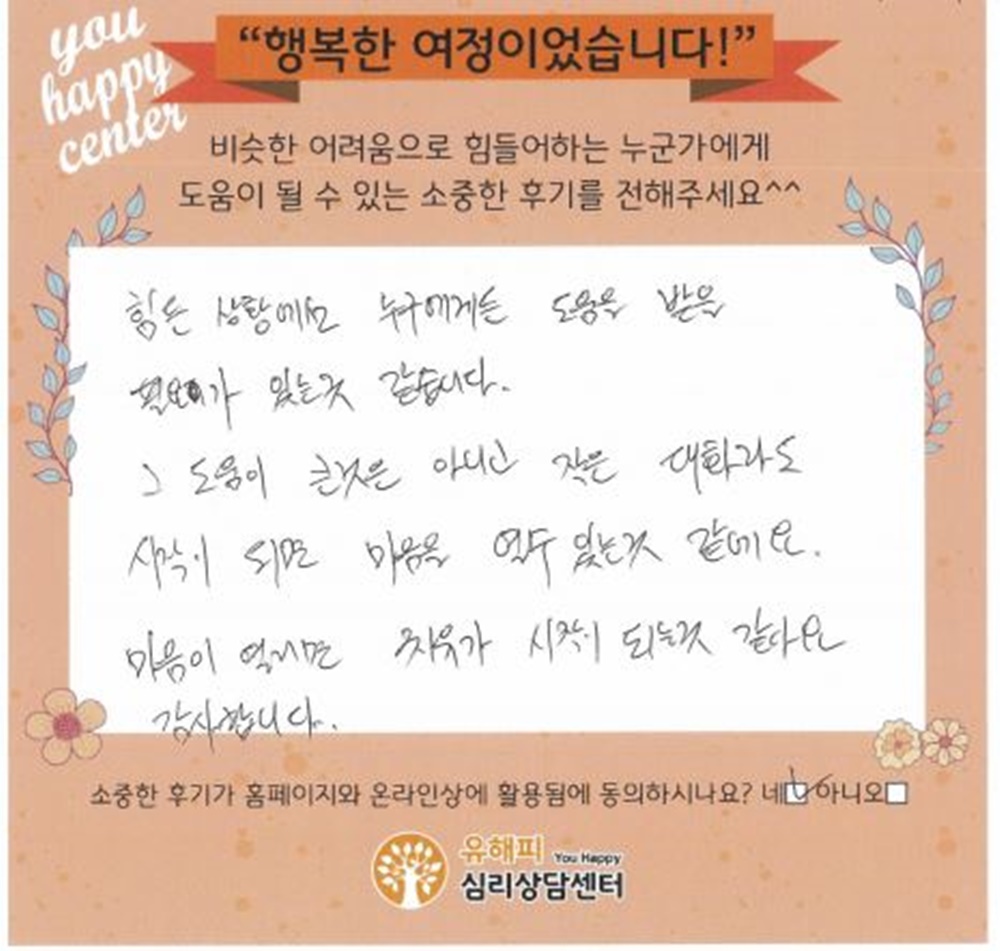 you
happy
center
“행복한 여정이었습니다!”
비슷한 어려움으로 힘들어하는 누군가에게
도움이 될 수 있는 소중한 후기를 전해주세요^^
힘든 상황에선 누구에게든 도움을 받을
필요가 있는것 같습니다.
그 도움이 큰것은 아니고 작은 대화라도
시작이 되면 마음을 열수 있는것 같네요.
마음이 열리면 치유가 시작이 되는것 같아요
감사합니다.
소중한 후기가 홈페이지와 온라인상에 활용됨에 동의하시나요? 네 아니오
유해피 You Happy
심리상담센터